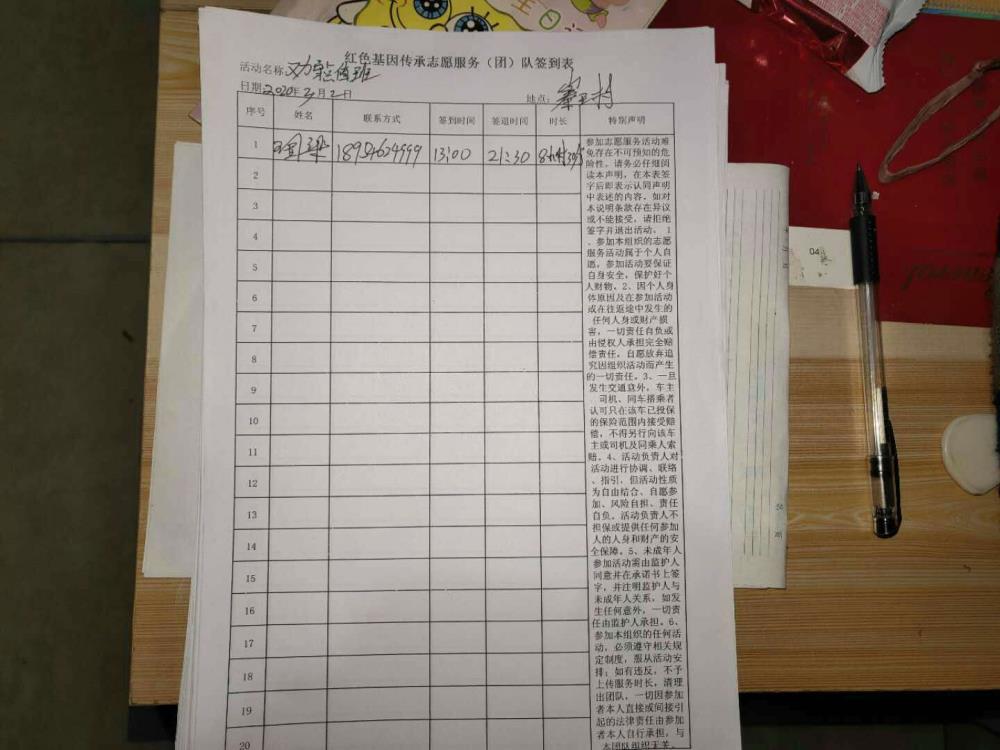 红色基因传承志愿服务(团)队签到表
活动名称
日期2020年3月2日 地点:
序号 姓名 联系方式 签到时间 签退时间 时长 特别声明
1 18954624999 13:00 21:30
2
3
4
5
6
7
8
9
10
11
12
13
14
15
16
17
18
19
20
参加志愿服务活动难
免存在不可预知的危
险性,请务必仔细阅
读本声明,在本表签
字后即表示认同声明
中表述的内容。如对
本说明条款存在异议
或不能接受,请拒绝
签字并退出活动。1
、参加本组织的志愿
服务活动属于个人自
愿,参加活动要保证
自身安全,保护好个
人财物。2、因个人身
体原因及在参加活动
或在往返途中发生的
任何人身或财产损
害,一切责任自负或
由侵权人承担完全赔
偿责任。自愿放弃追
究因组织活动而产生
的一切责任。3、一旦
发生交通意外,车主
、司机、同车搭乘者
认可只在该车已投保
的保险范围内接受赔
偿,不得另行向该车
主或司机及同乘人索
赔。4、活动负责人对
活动进行协调、联络
、指引,但活动性质
为自由结合、自愿参
加、风险自担、责任
自负。活动负责人不
担保或提供任何参加
人的人身和财产的安
全保障。5、未成年人
参加活动需由监护人
同意并在承诺书上签
字,并注明监护人与
未成年人关系,如发
生任何意外,一切责
任由监护人承担。6、
参加本组织的任何活
动,必须遵守相关规
定制度,服从活动安
排;如有违反,不予
上传服务时长,清理
出团队,一切因参加
者本人直接或间接引
起的法律责任由参加
者本人自行承担,与
本团队组织无关。
04